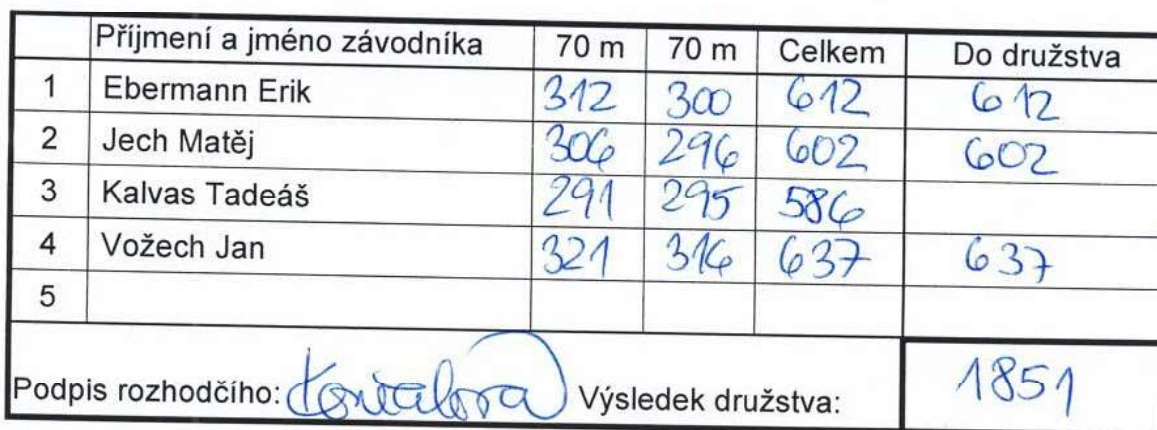 Příjmení a jméno závodníka 70 m 70 m Celkem Do družstva
1 Ebermann Erik 312 300 612 612
2 Jech Matěj 306 296 602 602
3 Kalvas Tadeáš 291 295 586
4 Vožech Jan 321 316 637 637
5
Podpis rozhodčího: Výsledek družstva: 1851